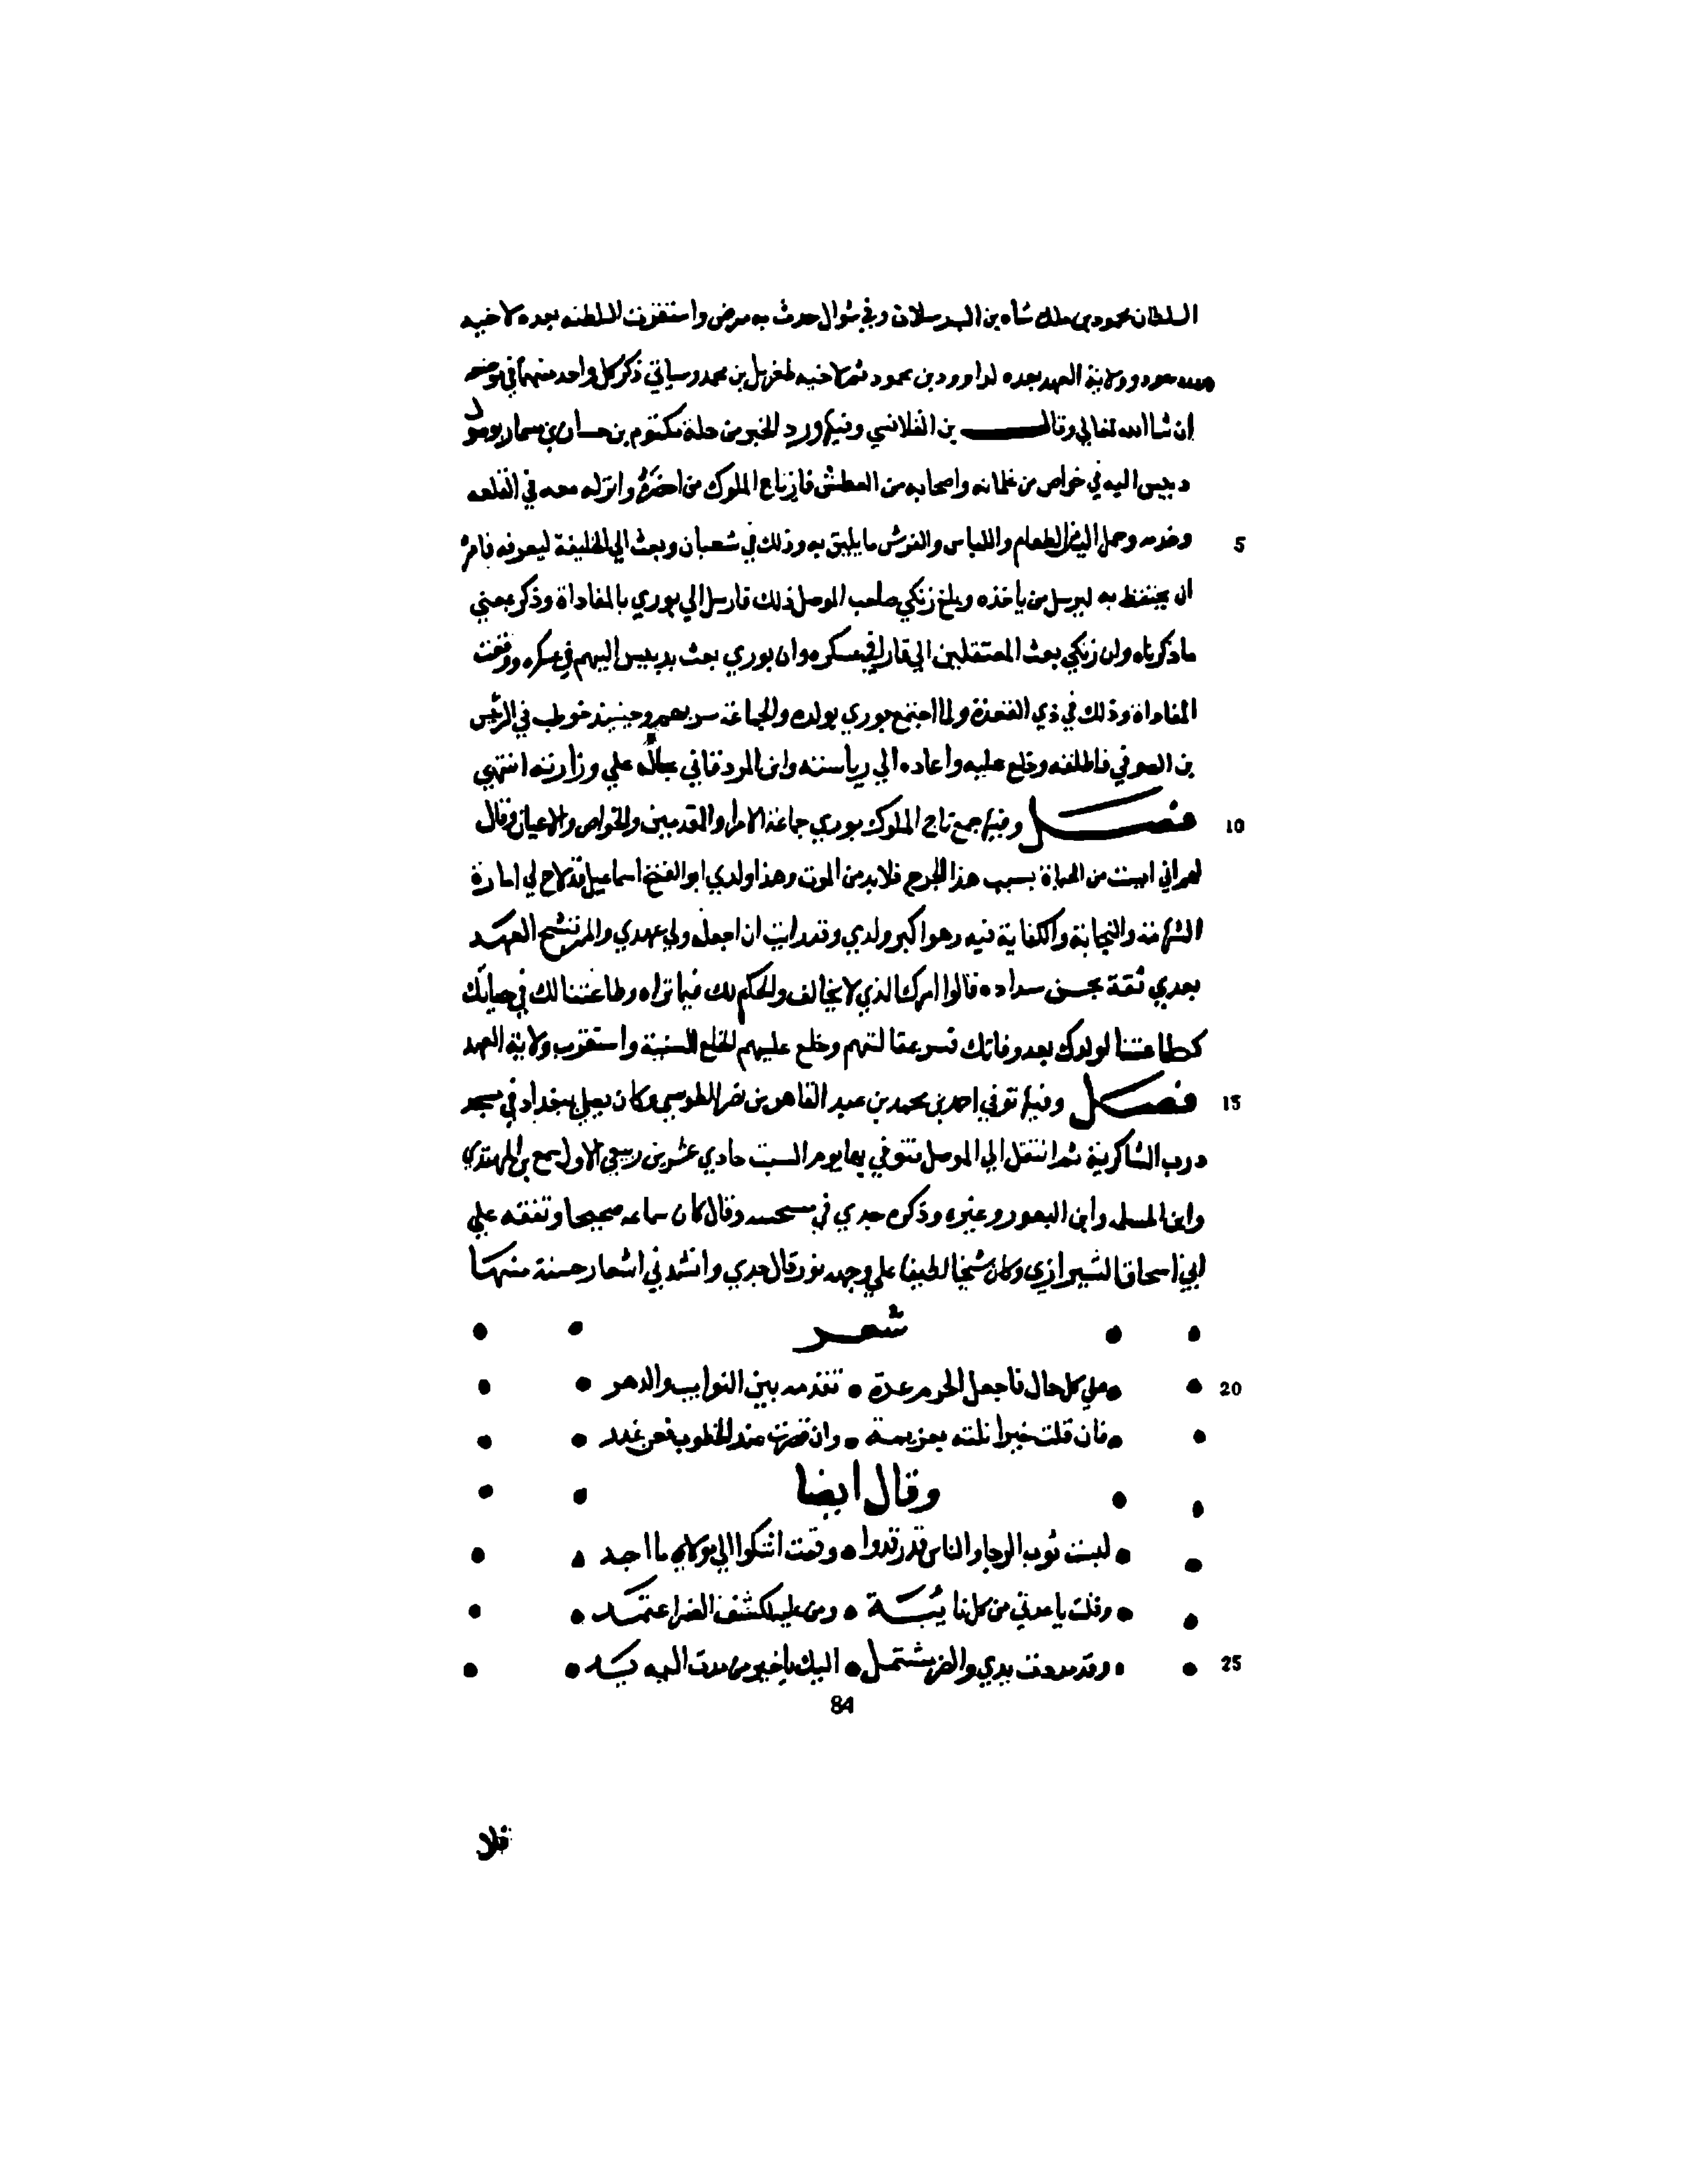 السلطان محمود بن ملك شاه بن البرسلان وفي شوال حدث به مرض واستقرت السلطنه بعده لاخيه
مسعود وولاية العهد بعده لداوود بن محمود ثم لاخيه طغربل بن محمد وسياتي ذكر كل واحد منهما في موضعه
ان شا الله تعالي وقال بن القلانسي وفيها ورد الخبر من حلة مكتوم بن حسان بن سمار
دبيس اليه في خواص من غلمانه واصحابه من العطش فانزعاج الملوك من احضره وانزله معه في القلعه
وخدمه وحمل اليه من الطعام واللباس والفرش ما يليق به وذلك في شعبان وبعث الي الخليفة ليعرفه فامره
ان يحتفظ به ليرسل من ياخذه وبلغ زنكي صاحب الموصل ذلك فارسل الي بوري بالمفاداة وذكر بمعني
ما ذكرناه وان زنكي بعث المعتقلين الي قارا في عسكره وان بوري بعث بدبيس اليهم في عسكره ووقعت
المفاداة وذلك في ذي القعدة ولما اجتمع بوري بولده والجماعة سر بهم وحينيذ خوطب في الرئيس
بن الصوفي فاطلقه وخلع عليه واعاده الي رياسته وابن المزدقاني بحاله علي وزارته انتهي
فصل وفيها جمع تاج الملوك بوري جماعة الامرا والمقدمين والخواص والاعيان وقال
لهم اني ايست من الحياة بسبب هذا الجرح فلا بد من الموت وهذا ولدي ابو الفتح اسماعيل قد لاح لي امارة
الشهامة والنجابة والكفاية فيه وهو اكبر ولدي وقد رايت ان اجعله ولي عهدي والمرتشح العهد
بعدي ثقة بحسن سداده فقالوا امرك الذي لا يخالف والحكم لك فيما تراه وطاعتنا لك في حياتك
كطاعتنا لولدك بعد وفاتك فسر بمقالتهم وخلع عليهم الخلع السنية واستقرت ولاية العهد
فصل وفيها توفي احمد بن محمد بن عبد القاهر بن نصر الطوسي وكان يصلي ببغداد في مسجد
درب الشاكرية ثم انتقل الي الموصل فتوفي بها يوم السبت حادي عشر من ربيع الاول سمع بن المهتدي
وابن المسلمه وابن النقور وغيره وذكره جدي في مشيخته وقال كان سماعه صحيحا وتفقه علي
ابي اسحاق الشيرازي وكان شيخا لطيفا علي وجهه نور قال جدي وانشدني اشعار حسنة منها
شعر
علي كل حال فاجعل الحزم عدة • تقدمه بين النوايب والدهر
فان قلت خيرا نلته بعزيمة • وان قصرت عند الخطوب فعن عذر
وقال ايضا
لبست ثوب الرجا والناس قد رقدوا • وقمت اشكوا الي مولاي ما اجد
وقلت يا عدتي من كل نايبة • ومن عليه لكشف الضر اعتمد
وقد مددت يدي والضر مشتمل • اليك يا خير من مدت اليه يد
84
فلا
5
10
15
20
25